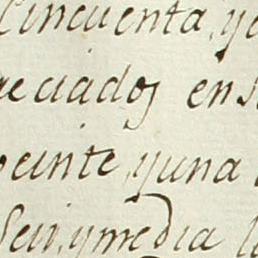 Cinquenta, y
eciados en
veinte, yuna
Seis, ymedia